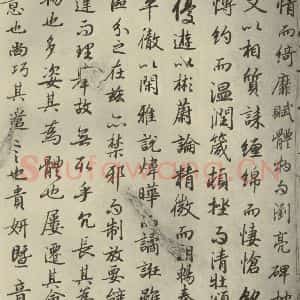 情而綺靡賦體物而瀏亮碑
文以相質誄纏綿而悽愴銘
愽約而溫潤箴頓挫而清壯
優遊以彬蔚論精微而朗暢奏
平徹以閑雅說煒曄而譎誑雖
區分之在茲亦禁邪而制放要
達而理舉故無取乎冗長其為
物也多姿其為體也屢遷其會
意也尚巧其遣言也貴妍暨音
Shufawang.CN